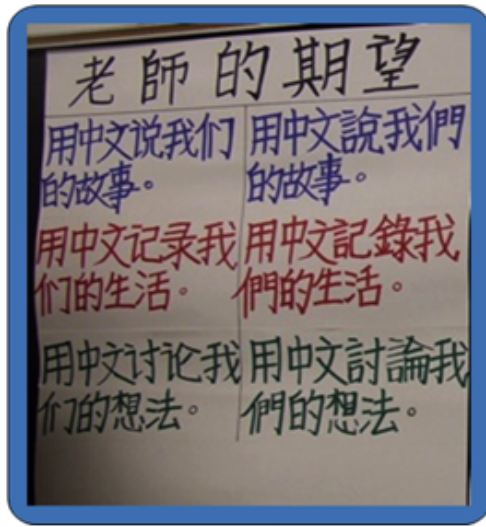 老師的期望
用中文说我们
的故事。
用中文记录我
们的生活。
用中文讨论我
们的想法。
用中文說我們
的故事。
用中文記錄我
們的生活。
用中文討論我
們的想法。